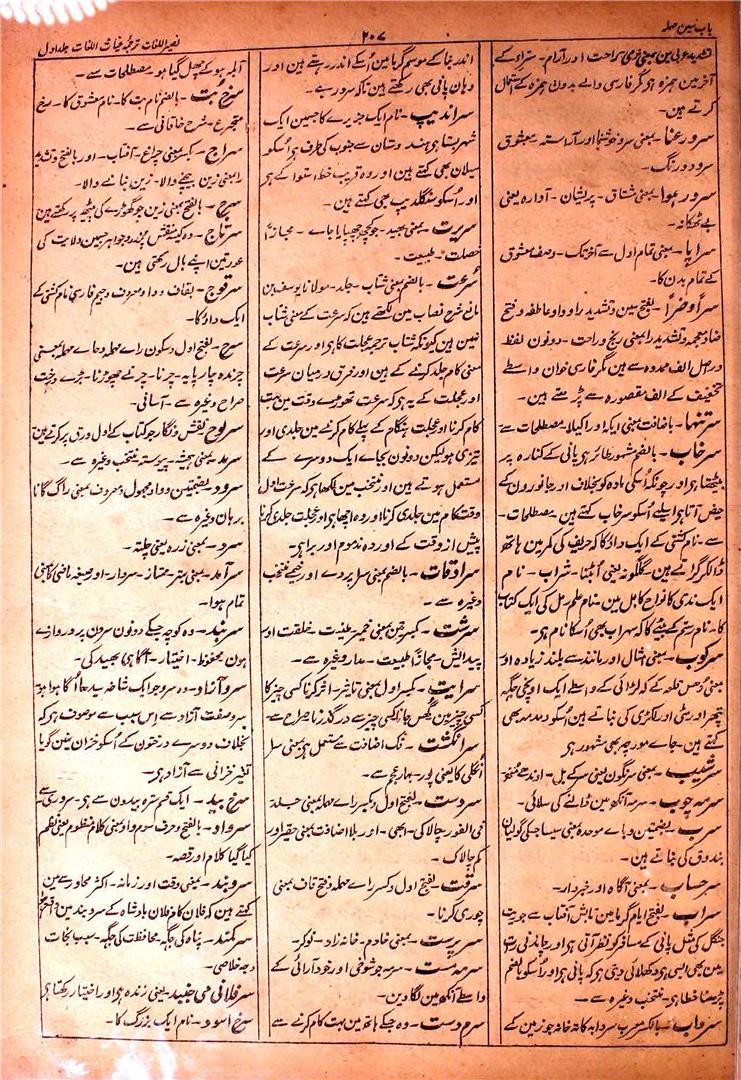 باب سین مہملہ
۲۰۷
نصیر اللغات ترجمۂ غیاث اللغات جلد اول
تشدید عربی میں بمعنی خوشی راحت اور آرام۔ سترا کے
آخر مین ہمزہ ہے مگر فارسی والے بدون ہمزہ کے استعمال
کرتے ہین۔
سرو رعنا۔ بمعنی سرو خوشنما اور آراستہ۔ معشوق
سرو دورنگ۔
بمعنی مشتاق۔ پریشان۔ آوارہ یعنی
بے ٹھکانہ۔
سراپا۔ بمعنی تمام اول سے آخر تک۔ وصف معشوق
کے تمام بدن کا۔
سراوضرا۔ بفتح سین و تشدید را و واو عاطفہ و فتح
ضاد معجمہ و تشدید را بمعنی رنج و راحت۔ دونون لفظ
دراصل الف ممدودہ سے ہین مگر فارسی خوان واسطے
تخفیف کے الف مقصورہ سے پڑہتے ہین۔
سر تنہا۔ باضافت بمعنی ایکہ اور اکیلا مصطلحات سے
سرخاب۔ بالضم مشہور طائر ہے پانی کے کنارہ پر
بیٹھتا ہے اور چونکہ اسکی مادہ کو بخلاف اور جانورون کے
حیض آتا ہے اسلیے اسکو سرخاب کہتے ہین مصطلحات۔
سے۔ نام کشتی کے ایک داؤ کا کہ حریف کی کمر مین ہاتھ
ڈالکر گراتے ہین۔ گلگونہ یعنی اُبٹنا۔ شراب۔ نام
ایک ندی کا نواح کابل مین۔ نام علم رمل کی ایک کتاب
کا۔ نام رستم کے بیٹے کا کہ سہراب بھی اسکا نام ہے۔
سرکوب۔ بمعنی امثال اور مانند سے بلند زیادہ اور
بمعنی دمدمہ قلعہ کے کہ لڑائی کے واسطے ایک اونچی جگہ
پتھر اور مٹی اور لکڑی کی بناتے ہین اسکو دمدمہ بھی
کہتے ہین۔ جاے مورچہ بھی مشہور ہے
سر شیب۔ بمعنی سرنگون یعنی سر کے بل۔ اوندھے منھ
سرمہ چوب۔ سرمہ آنکھ مین ڈالنے کی سلائی۔
سرب۔ بضمتین و باے موحدہ بمعنی سیسا جسکی گولیان
بندوق کی بناتے ہین۔
سر حساب۔ بمعنی آگاہ اور خبردار۔
سراب۔ بفتح ایام گرما مین تابش آفتاب سے جو ریت
جنگل کی مثل پانی کے مسافر کو نظر آتی ہے اور چاندنی رات
مین بھی ایسی ہی دکھلائی دیتی ہے کہ پانی ہے اور اسکو بالضم
پڑہنا خطا ہے۔ منتخب وغیرہ سے۔
سرداب۔ بالکسر معرب سردابہ کا نہ خانہ جو زمین کے
اندر بنا کے موسم گرما مین اسکے اندر رہتے ہین اور
وہان پانی بھی رکھتے ہین تاکہ سرد رہے۔
سراندیپ۔ نام ایک جزیرے کا جسمین ایک
شہر بستا ہے ہندوستان سے جنوب کی طرف ہے اسکو
سیلان بھی کہتے ہین اور وہ قریب خط استوا کے ہے
اور اسکو سنگلدیپ بھی کہتے ہین۔
سریرت۔ بمعنی بھید۔ جو کچھ چھپایا جاے۔ مجازاً
خصلت۔ طبیعت۔
سرعت۔ بالضم بمعنی شتاب۔ جلد۔ مولانا یوسف بن
مانع شرح نصاب مین لکھتے ہین کہ سرعت کے معنی شتاب
نہین ہین کیونکہ شتاب ترجمہ عجلت کا ہے اور سرعت کے
معنی کام جلد کرنے کے ہین اور فرق درمیان سرعت
اور عجلت کے یہ ہے کہ سرعت تھوڑے وقت مین بہت
کام کرنا اور عجلت ہنگام کے پہلے کام کرنے مین جلدی اور
تیزی ہے لیکن دونون بجاے ایک دوسرے کے
مستعمل ہوتے ہین اور منتخب مین لکھا ہے کہ سرعت اول
وقت کام مین جلدی کرنا اور وہ اچھا ہے اور عجلت جلدی کرنا
پیش از وقت کے اور وہ مذموم اور برا ہے۔
سرادقات۔ بالضم بمعنی سراپردے اور خیمے منتخب
وغیرہ سے۔
سرشت۔ بکسرتین بمعنی خمیر۔ طینت۔ خلقت اور
پیدائش۔ مجازاً طبیعت۔ مدار وغیرہ سے۔
سرایت۔ بکسر اول بمعنی تاثیر۔ اثر کرنا کسی چیز کا
کسی چیز مین گھس جانا کسی چیز سے درگذرنا صراح سے۔
سر انگشت۔ فک اضافت سے مستعمل ہے بمعنی سر
انگلی کا یعنی پور۔ بہار عجم سے۔
سردست۔ بفتح اول و کسر راے مہملہ بمعنی جلد۔
فی الفور۔ چالاکی۔ ابھی۔ اور بلا اضافت بمعنی حقیر اور
کم چالاک۔
سرقت۔ بفتح اول و کسر راے مہملہ و فتح قاف بمعنی
چوری کرنا۔
سرپرست۔ بمعنی خادم۔ خانہ زاد۔ نوکر۔
سرمہ مست۔ سرمہ جو شوخی اور خود آرائی کے
واسطے آنکھ مین لگا دین۔
سرم دست۔ وہ جسکے ہاتھ مین بہت کام کرنے سے
آبلہ ہو کے چھل گیا ہو۔ مصطلحات سے۔
سرخ بت۔ بالضم نام بت کا۔ نام معشوق کا۔ سرخ
شرح خاقانی سے۔
سراج۔ بکسر بمعنی چراغ۔ آفتاب۔ اور بالفتح و تشدید
را بمعنی زین بیچنے والا۔ زین بنانے والا۔
سرج۔ بالفتح بمعنی زین جو گھوڑے کی پیٹھ پر رکھتے ہین
سرتاج۔ وہ کیسہ نقش بند و جواہر جسمین ولایت کی
عورتین اپنے بال رکھتی ہین۔
سرقوج۔ بقاف و واو معروف و جیم فارسی نام کشتی کے
ایک داؤ کا۔
سرح۔ بفتح اول و سکون راے مہملہ و حاے مہملہ بمعنی
چرندہ چارپایہ۔ چرنا۔ چرنے چھوڑنا۔ بڑے درخت
صراح وغیرہ سے۔ آسانی۔
سر لوح۔ نقش و نگار جو کتاب کے اول ورق پر کرتے ہین
سرمد۔ بمعنی ہمیشہ۔ پیوستہ منتخب وغیرہ سے۔
سرود۔ بضمتین و واو مجہول و معروف بمعنی راگ گانا
برہان وغیرہ سے۔
سرد۔ بمعنی زرہ یعنی چلتہ۔
سرآمد۔ بمعنی بہتر۔ ممتاز۔ سردار۔ اور صیغہ ماضی کا بمعنی
تمام ہوا۔
سربند۔ وہ کوچہ جسکے دونون سرون پر دروازے
ہون محفوظ۔ اختیار۔ آگاہی بھید کی۔
سرو آزاد۔ وہ سرو جو ایک شاخہ سیدھا اُگا ہوا ہو
سرو صفت آزاد سے اس سبب سے موصوف ہے کہ
بخلاف دوسرے درختون کے اسکو خزان نہین گویا
تغیر خزانی سے آزاد ہے۔
سرخ بید۔ ایک قسم سترہ بیدون سے ہے۔ سروری سے
سرواد۔ بالفتح و حرف سوم واو بمعنی کلام منظوم یعنی نظم
کیا گیا کلام اور قصہ۔
سروبند۔ بمعنی وقت اور زمانہ۔ اکثر محاورے مین
کہتے ہین کہ فلان کام فلان بادشاہ کے سروبند مین واقع ہوا
سرکمند۔ پناہ کی جگہ۔ محافظت کی جگہ۔ سبب نجات
وجہ خلاصی۔
سر فلانی می جنبد۔ یعنی زندہ ہے اور اختیار رکھتا ہے
سرخ اسود۔ نام ایک بزرگ کا۔